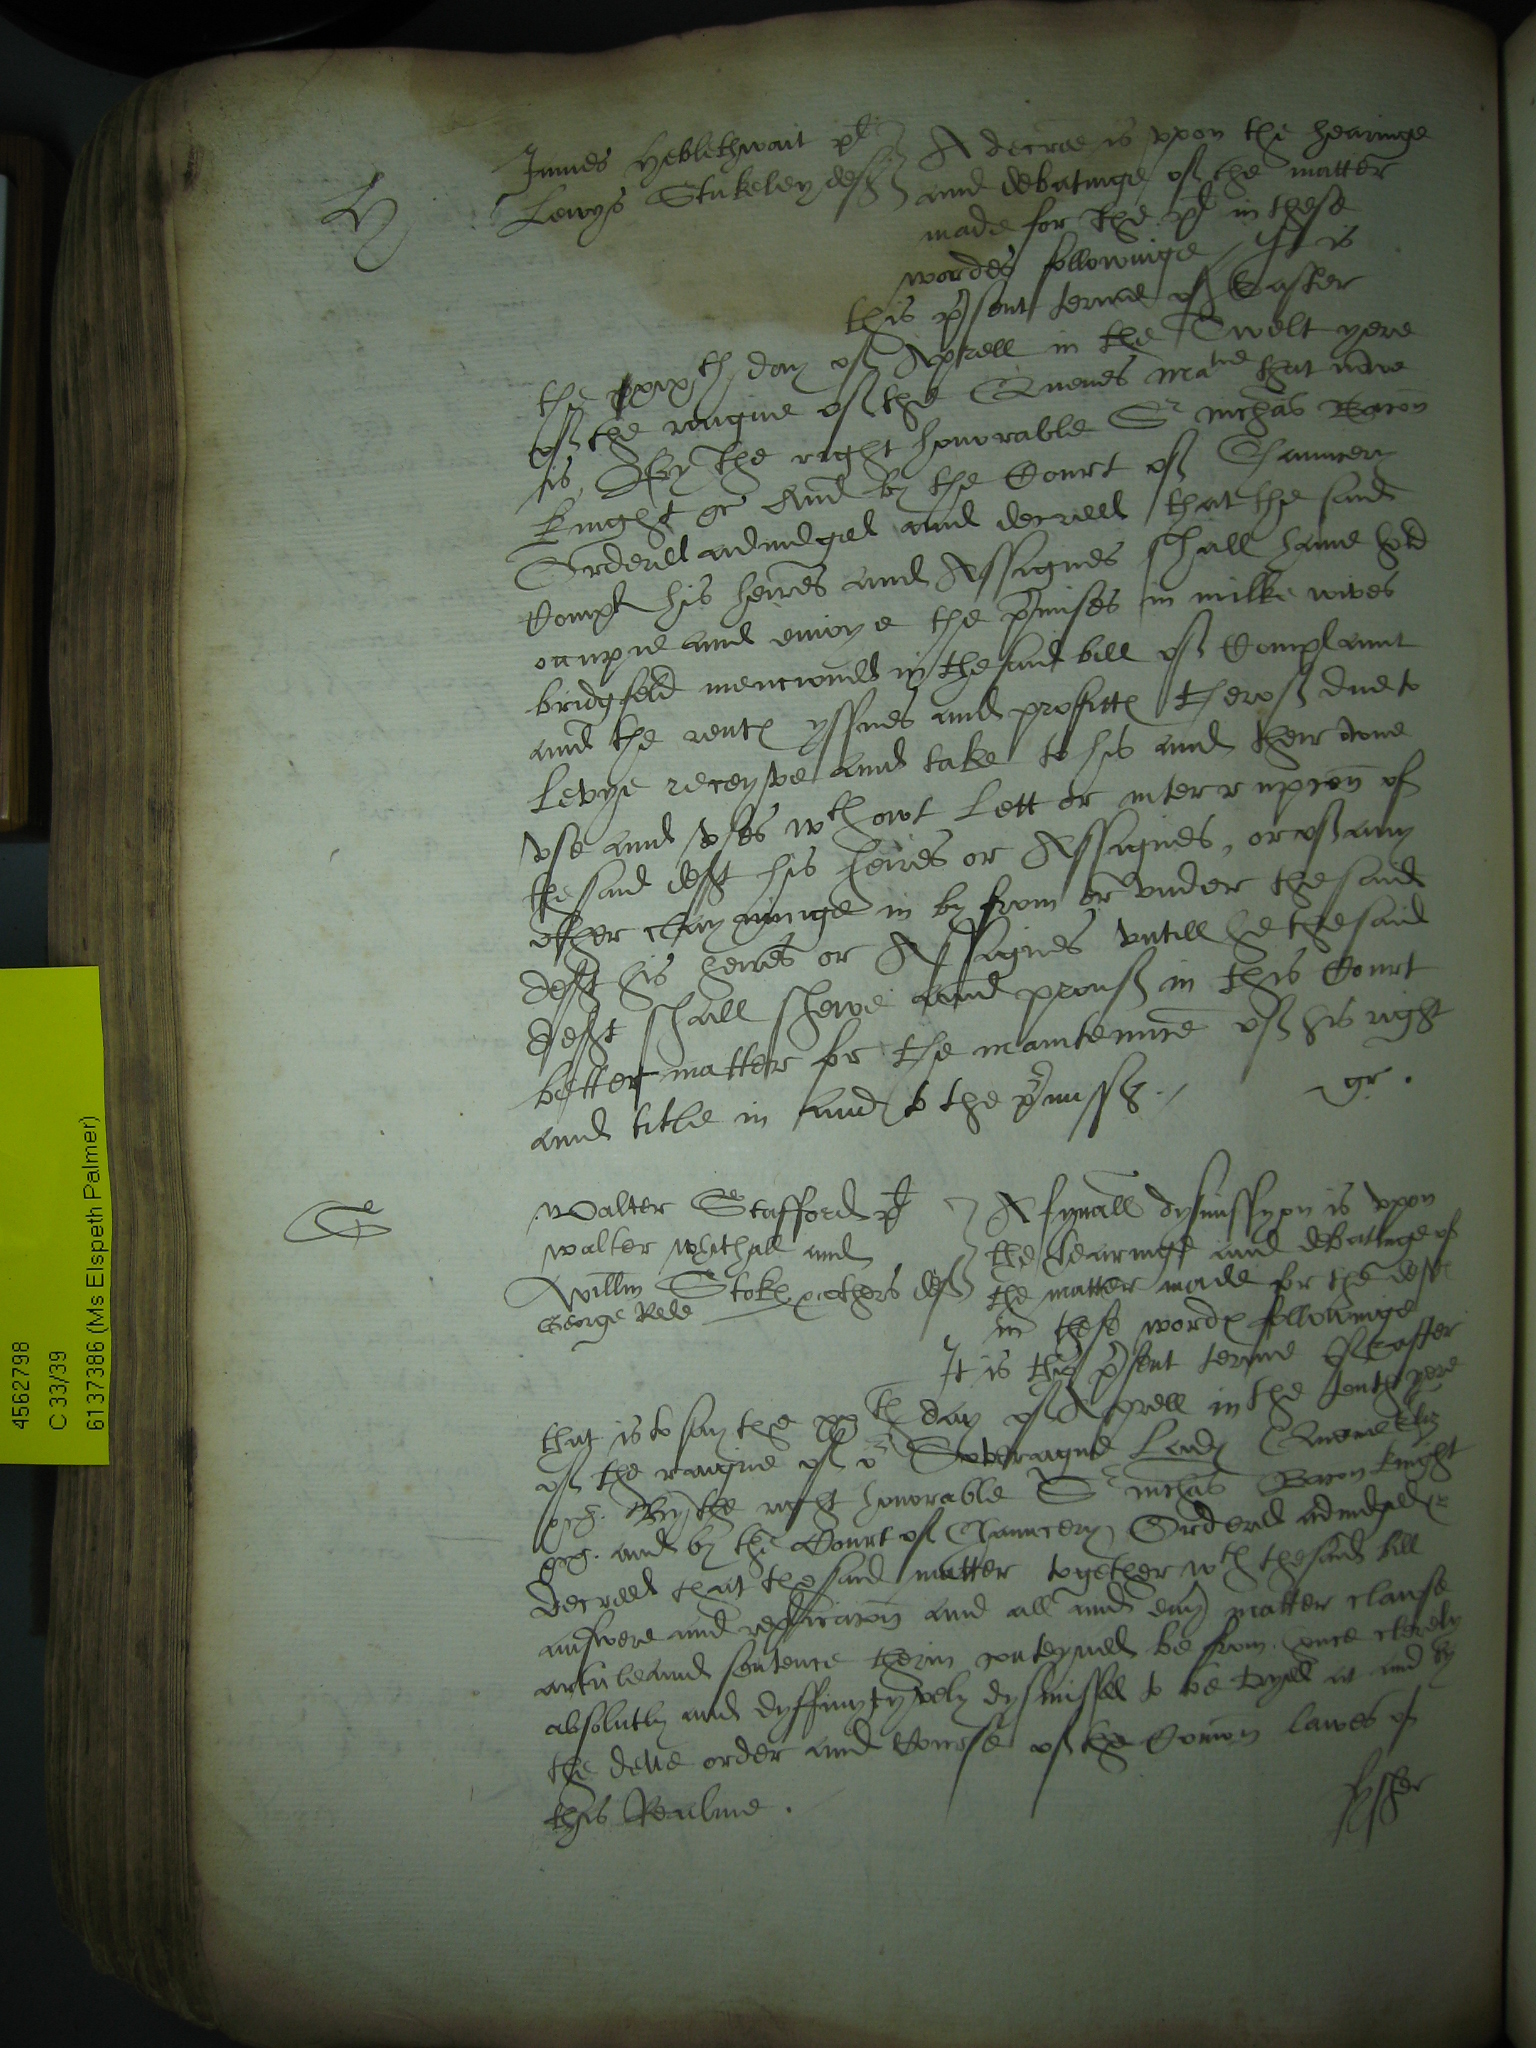 H
James Heblethwait plt
Lewys Stukeley deft
A decree is vpon the hearinge
and debatinge of the matter
made for the plt in these
wordes followinge / It is
this p̃sent terme of Easter
the xxixth day of Aprell in the Twelt yere
of the raigne of the Quenes matie that nowe
is, By the right honorable Sr Nichãs Bacon
knight &c And by the Court of Chauncery
Ordered adiudged and decreed that the said
Complt his heires and Assignes shall haue hold
occupie and enioye the p̃mises in milke wives
bridgfeld mencioned in the said bill of Complaint
and the rentes yssues and profittes therof due to
levye receyve and take to his and their owne
vse and vses wthowt lett or interrupcon of
the said deft his heires or Assignes, or of any
other claymynge in by from or vnder the said
deft his heires or Assignes vntill he the said
deft shall shewe and prove in this Court
better matter for the maintenñce of his right
and title in and to the p̃misses. /
gr.
S
Walter Stafford plt
Walter Whithall and
Willm̃ Stokes & others deft
George Rede
A fynall dysmissyon is vpon
the hearinge and debatinge of
the matter made for the deft
in these wordes followinge
It is this p̃sent terme of Easter
that is to say the xxth day of Aprell in the tenth yere
of the raigne of or Soveraigne Lady Quene Eliz
&c. By the right honorable Sr Nichãs Bacon knight
&c. and by the Court of Chauncery Ordered adiudged &
decreed that the said matter together wth the said bill
answere and replicacõn and all and eu̾y matter clause
article and sentence therin conteyned be from hence clerely
absolutly and dyffinytyvely dysmissed to be tryed at and by
the dewe order and Course of the Com̃on lawes of
this Realme.
fysher
4562798
C 33/39
6137386 (Ms Elspeth Palmer)